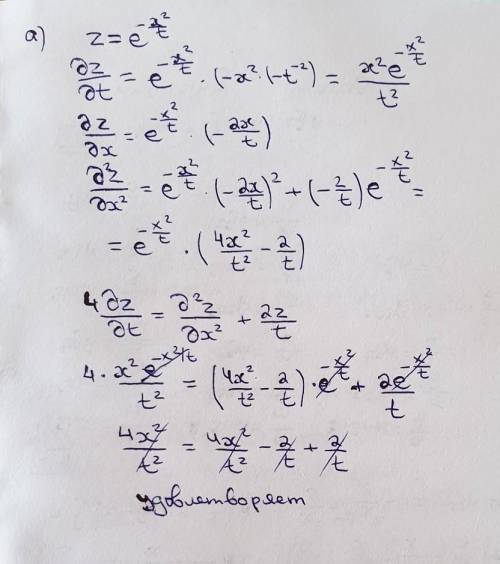 а) z = e^{-x²/t}
∂z/∂t = e^{-x²/t} · (-x² · (-t⁻²) = x²e^{-x²/t}/t²
∂z/∂x = e^{-x²/t} · (-2x/t)
∂²z/∂x² = e^{-x²/t} · (-2x/t)² + (-2/t)e^{-x²/t} =
= e^{-x²/t} · (4x²/t² - 2/t)
4∂z/∂t = ∂²z/∂x² + 2z/t
4 · x²e^{-x²/t}/t² = (4x²/t² - 2/t) · e^{-x²/t} + 2e^{-x²/t}/t
4x²/t² = 4x²/t² - 2/t + 2/t
удовлетворяет